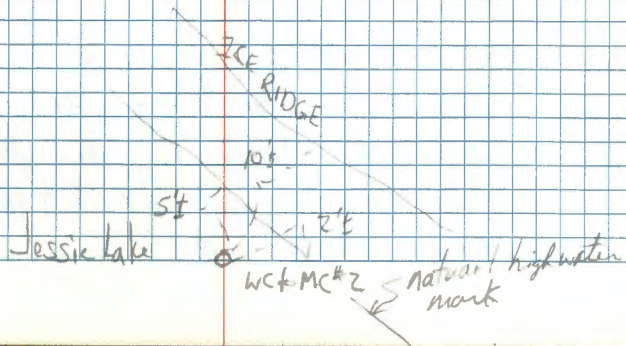 ICE RIDGE
10'±
5'±
2'±
Jessie Lake
WC to MC #2
natural high water
mark